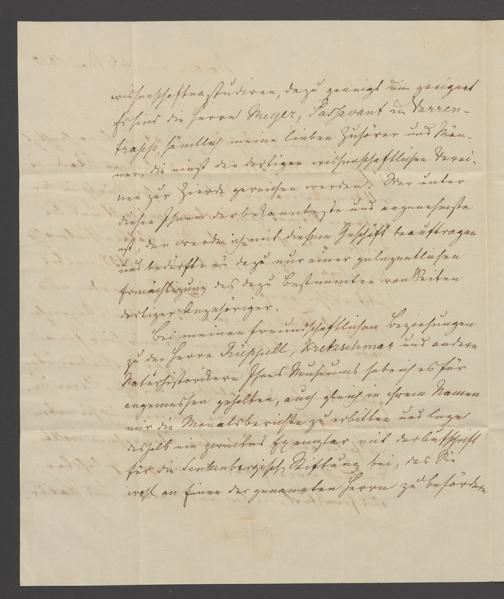 wissenschaften studiren, dazu geneigt und geeignet
seyn die Herrn Meyer, Passavant u Varren-
trapp, sämtlich meine lieben Zuhörer und Män-
ner, die einst den dortigen wissenschaftlichen Verei-
nen zur Zierde gereichen werden. Wer unter
diesen Ihnen der bekannteste und angenehmste
ist, den werde ich mit diesem Geschäft beauftragen
und bedürfte es dazu nur einer gelegentlichen
Ermächtigung des dazu Bestimmten von Seiten
dortiger Angehöriger.
Bei meinen freundschaftlichen Beziehungen
zu den Herrn Rüppell, Kretzschmar und andern
Naturhistorikern Ihres Museums habe ich es für
angemessen gehalten, auch gleich in ihrem Namen
mir die Monatsberichte zu erbitten und lege
deshalb ein zweites Exemplar mit der Aufschrift
für die Senkenbergische Stiftung bei, das Sie
wohl an Einen der genannten Herrn zu befördern